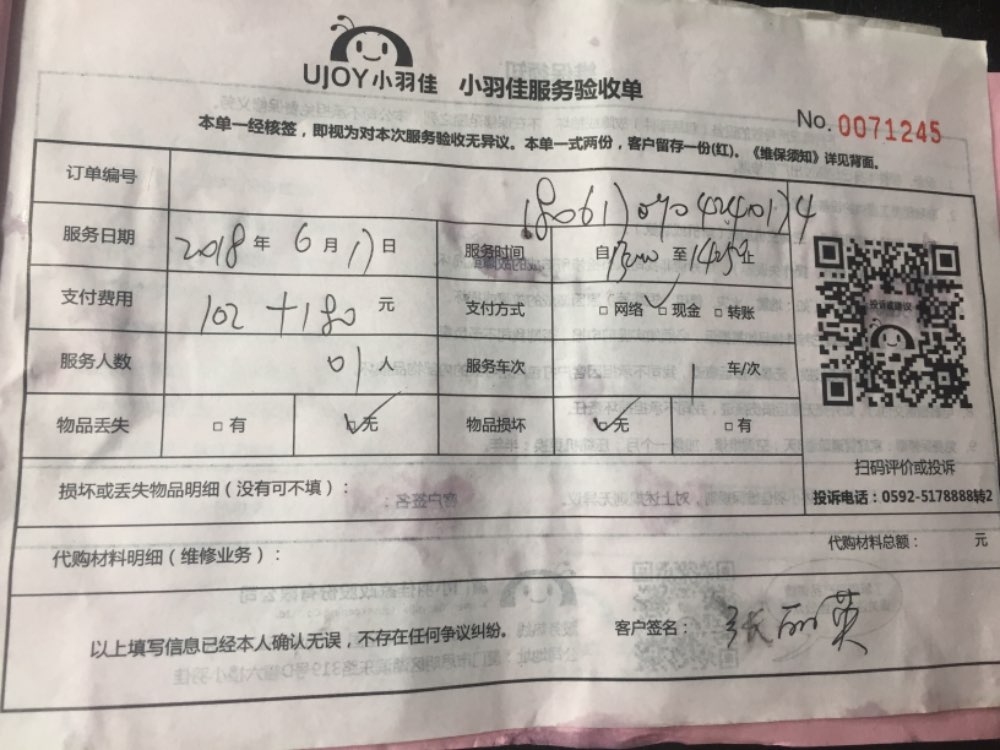 UJOY小羽佳 小羽佳服务验收单
No. 0071245
本单一经核签，即视为对本次服务验收无异议。本单一式两份，客户留存一份(红)。《维保须知》详见背面。
订单编号
服务日期 2018 年 6 月 17 日 服务时间 自 1300 至 1425 止
支付费用 102 + 180 元 支付方式 □ 网络 □ 现金 □ 转账
服务人数 01 人 服务车次 车/次
物品丢失 □ 有 □ 无 物品损坏 □ 无 □ 有
投诉或建议
扫码评价或投诉
投诉电话：0592-5178888转2
损坏或丢失物品明细（没有可不填）：
代购材料明细（维修业务）： 代购材料总额： 元
以上填写信息已经本人确认无误，不存在任何争议纠纷。 客户签名： 张丽英